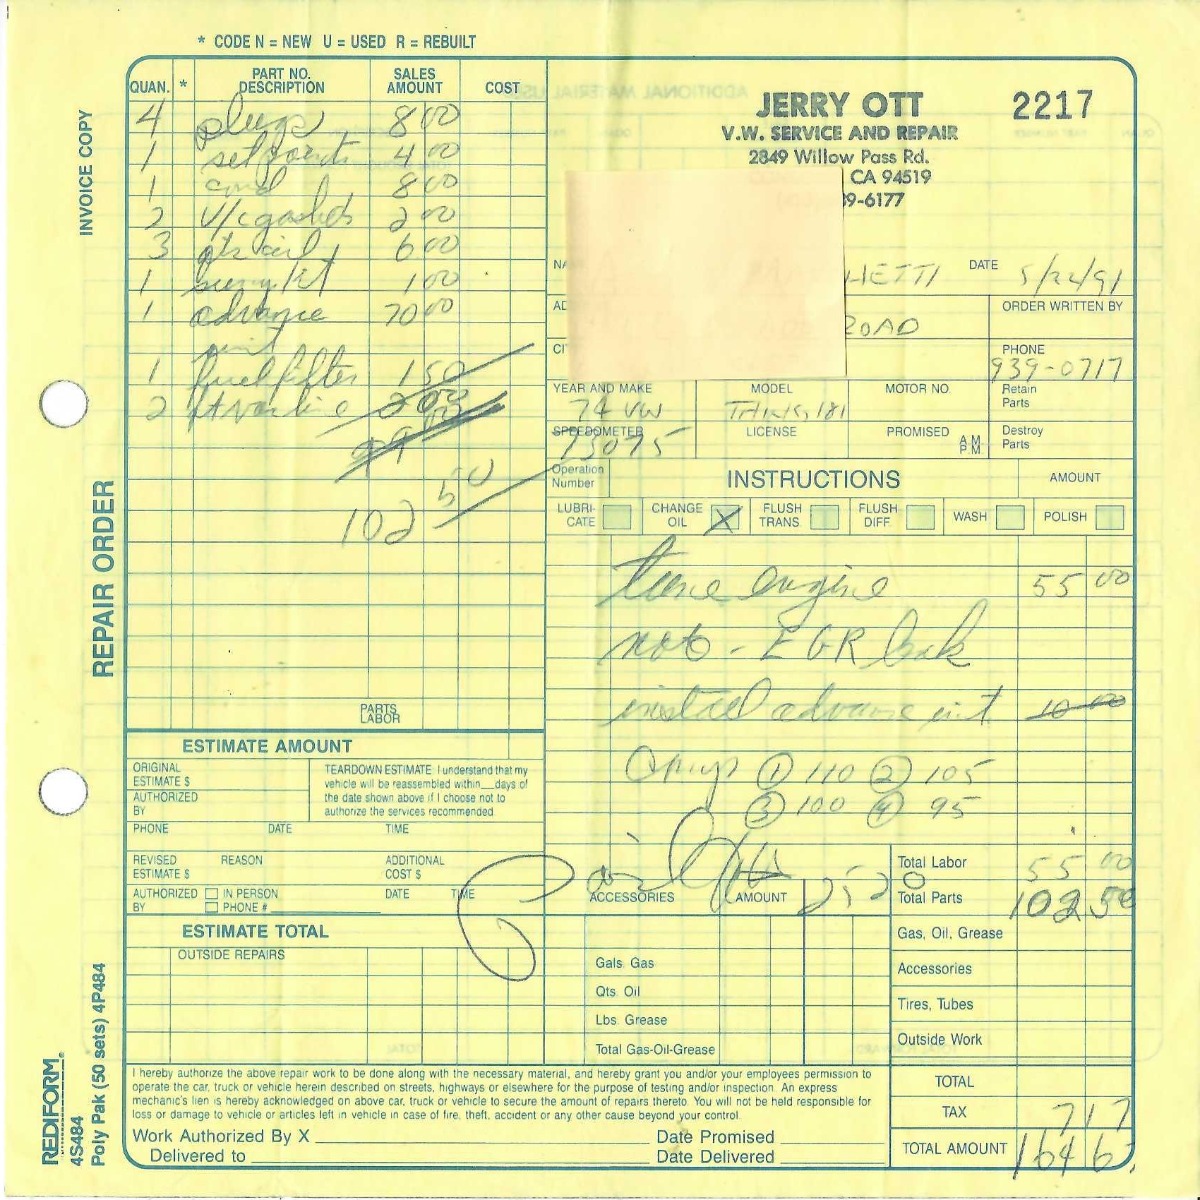 * CODE N = NEW U = USED R = REBUILT
QUAN. * PART NO. DESCRIPTION SALES AMOUNT COST
4 plugs 8 00
1 set points 4 00
1 cond 8 00
2 V/c gaskets 2 00
3 qts oil 6 00
1 kit 1 00
1 advance 70 00
unit
1 fuel filter 1 50
2 line 2 00
102 50
PARTS
LABOR
INVOICE COPY
REPAIR ORDER
REDIFORM®
4S484
Poly Pak (50 sets) 4P484
JERRY OTT 2217
V.W. SERVICE AND REPAIR
2849 Willow Pass Rd.
CA 94519
9-6177
NA HETTI DATE 5/22/91
AD ROAD ORDER WRITTEN BY
CI PHONE 939-0717
YEAR AND MAKE 74 VW MODEL THING 181 MOTOR NO. Retain Parts
SPEEDOMETER 73075 LICENSE PROMISED A.M. P.M. Destroy Parts
Operation Number INSTRUCTIONS AMOUNT
LUBRI-CATE CHANGE OIL X FLUSH TRANS. FLUSH DIFF. WASH POLISH
tune engine 55 00
not - EGR leak
install advance unit 10 00
Comp ① 110 ② 105
③ 100 ④ 95
ESTIMATE AMOUNT
ORIGINAL ESTIMATE $
AUTHORIZED BY
TEARDOWN ESTIMATE I understand that my
vehicle will be reassembled within___days of
the date shown above if I choose not to
authorize the services recommended
PHONE DATE TIME
REVISED ESTIMATE $ REASON ADDITIONAL COST $
AUTHORIZED BY IN PERSON DATE TIME
PHONE #
ESTIMATE TOTAL
OUTSIDE REPAIRS
ACCESSORIES AMOUNT
Gals. Gas
Qts. Oil
Lbs. Grease
Total Gas-Oil-Grease
Total Labor 55 00
Total Parts 102 50
Gas, Oil, Grease
Accessories
Tires, Tubes
Outside Work
TOTAL
TAX 7 17
TOTAL AMOUNT 164 67
I hereby authorize the above repair work to be done along with the necessary material, and hereby grant you and/or your employees permission to
operate the car, truck or vehicle herein described on streets, highways or elsewhere for the purpose of testing and/or inspection. An express
mechanic's lien is hereby acknowledged on above car, truck or vehicle to secure the amount of repairs thereto. You will not be held responsible for
loss or damage to vehicle or articles left in vehicle in case of fire, theft, accident or any other cause beyond your control.
Work Authorized By X Date Promised
Delivered to Date Delivered